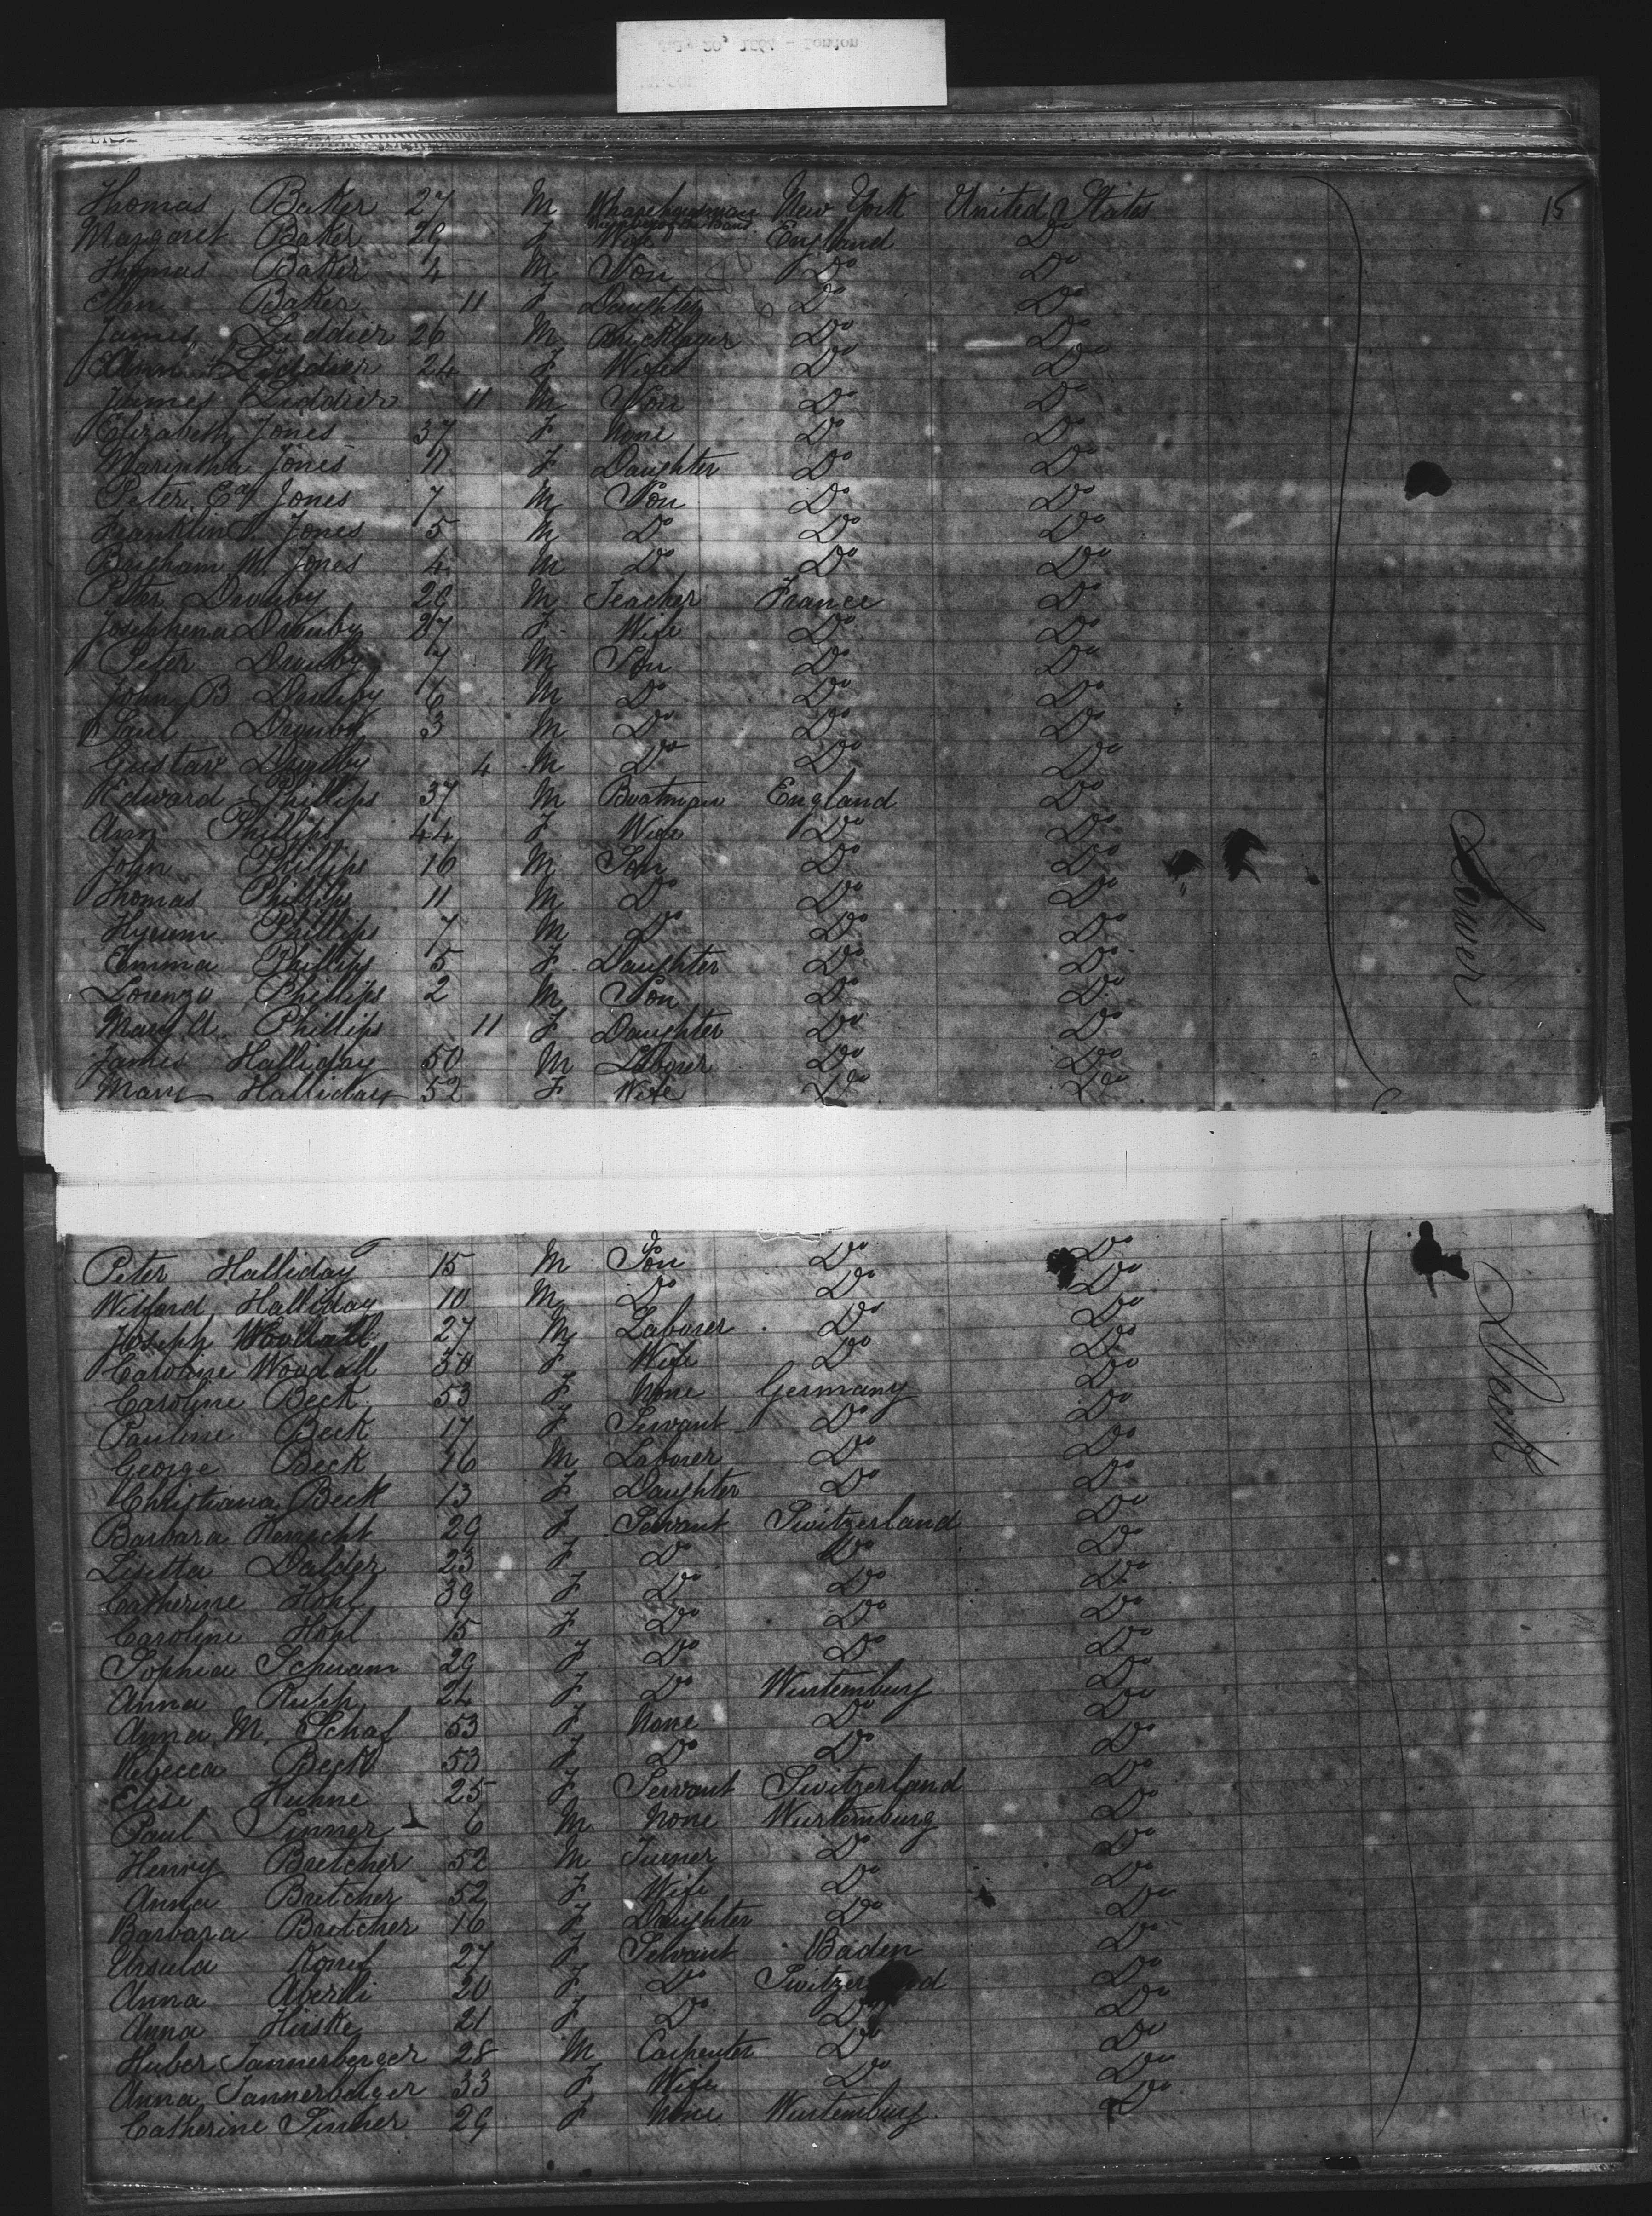 15
Thomas Baker 27 M New York United States
Margaret Baker 29 F Wife England Do
Thomas Baker 4 M Son Do Do
Ellen Baker 11 F Daughter Do Do
James Liddier 26 M Bricklayer Do Do
Ann Liddier 24 F Wife Do Do
James Liddier 11 M Son Do Do
Elizabeth Jones 37 F None Do Do
Marintha Jones 11 F Daughter Do Do
Peter Jones 7 M Son Do Do
Franklin Jones 5 M Do Do Do
Brigham M. Jones 4 M Do Do Do
Peter Drouby 29 M Teacher France Do
Josephena Drouby 27 F Wife Do Do
Peter Drouby 7 M Son Do Do
John B Drouby 6 M Do Do Do
Paul Drouby 3 M Do Do Do
Gustav Drouby 4 M Do Do Do
Edward Phillips 37 M Boatman England Do
Ann Phillips 44 F Wife Do Do
John Phillips 16 M Son Do Do
Thomas Phillips 11 M Do Do Do
Hyrum Phillips 7 M Do Do Do
Emma Phillips 5 F Daughter Do Do
Lorenzo Phillips 2 M Son Do Do
Mary A. Phillips 11 F Daughter Do Do
James Halliday 50 M Laborer Do Do
Mary Halliday 52 F Wife Do Do
Lower
Peter Halliday 15 M Son Do Do
Wilford Halliday 10 M Do Do Do
Joseph Woodall 27 M Laborer Do Do
Caroline Woodall 30 F Wife Do Do
Caroline Beck 53 F None Germany Do
Pauline Beck 17 F Servant Do Do
George Beck 16 M Laborer Do Do
Christiana Beck 13 F Daughter Do Do
Barbara 29 F Servant Switzerland Do
Lisetta Dalder 23 F Do Do Do
Catherine Hohl 39 F Do Do Do
Caroline Hohl 15 F Do Do Do
Sophia 29 F Do Do Do
Anna Rupp 24 F Do Wurtemburg Do
Anna M. Schaf 53 F None Do Do
Rebecca Beck 53 F Do Do Do
Elise Huhne 25 F Servant Switzerland Do
Paul Sinner 6 M None Wurtemburg Do
Henry Bretcher 52 M Turner Do Do
Anna Bretcher 52 F Wife Do Do
Barbara Bretcher 16 F Daughter Do Do
Ursula 27 F Servant Baden Do
Anna Aberli 20 F Do Switzerland Do
Anna Hirske 21 F Do Do Do
Huber Tannerberger 28 M Carpenter Do Do
Anna Tannerberger 33 F Wife Do Do
Catherine Sinner 29 F None Wurtemburg Do
Deck